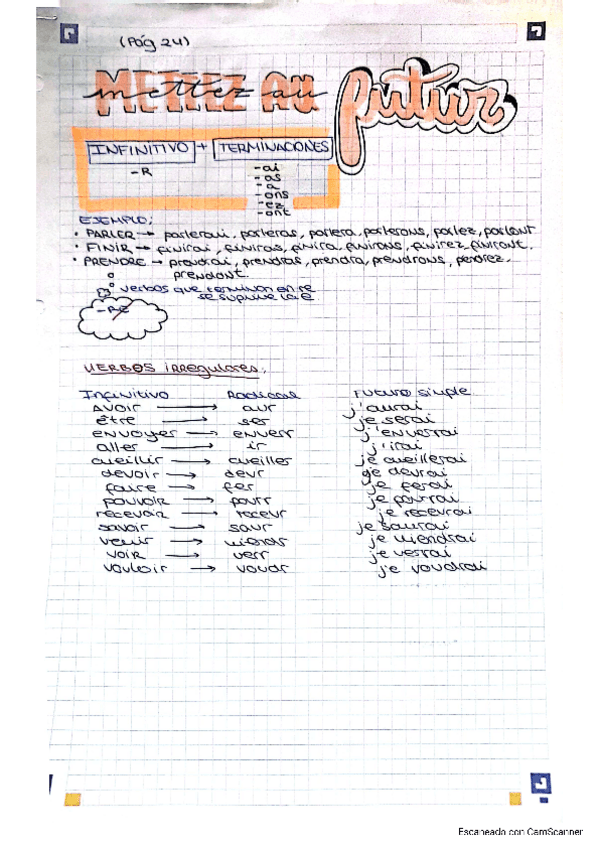 (Pág 24)
mettez au futur
METTEZ AU
INFINITIVO + TERMINACIONES
-R
-ai
-as
-a
-ons
-ez
-ont
EJEMPLO:
• PARLER → parlerai, parleras, parlera, parlerons, parlez, parlont
• FINIR → finirai, finiras, finira, finirons, finirez, finiront.
• PRENDRE → prendrai, prendras, prendra, prendrons, perdrez,
prendont.
verbos que terminan en re
se suprime la e
-RE
VERBOS irregulares.
Infinitivo Radical Futuro simple
AVOIR → aur j'aurai
être → ser je serai
envoyer → enverr j'enverrai
aller → ir j'irai
cueillir → cueiller je cueillerai
devoir → devr je devrai
faire → fer je ferai
pouvoir → pourr je pourrai
recevoir → recevr je recevrai
savoir → saur je saurai
venir → viendr je viendrai
voir → verr je verrai
vouloir → voudr je voudrai
Escaneado con CamScanner